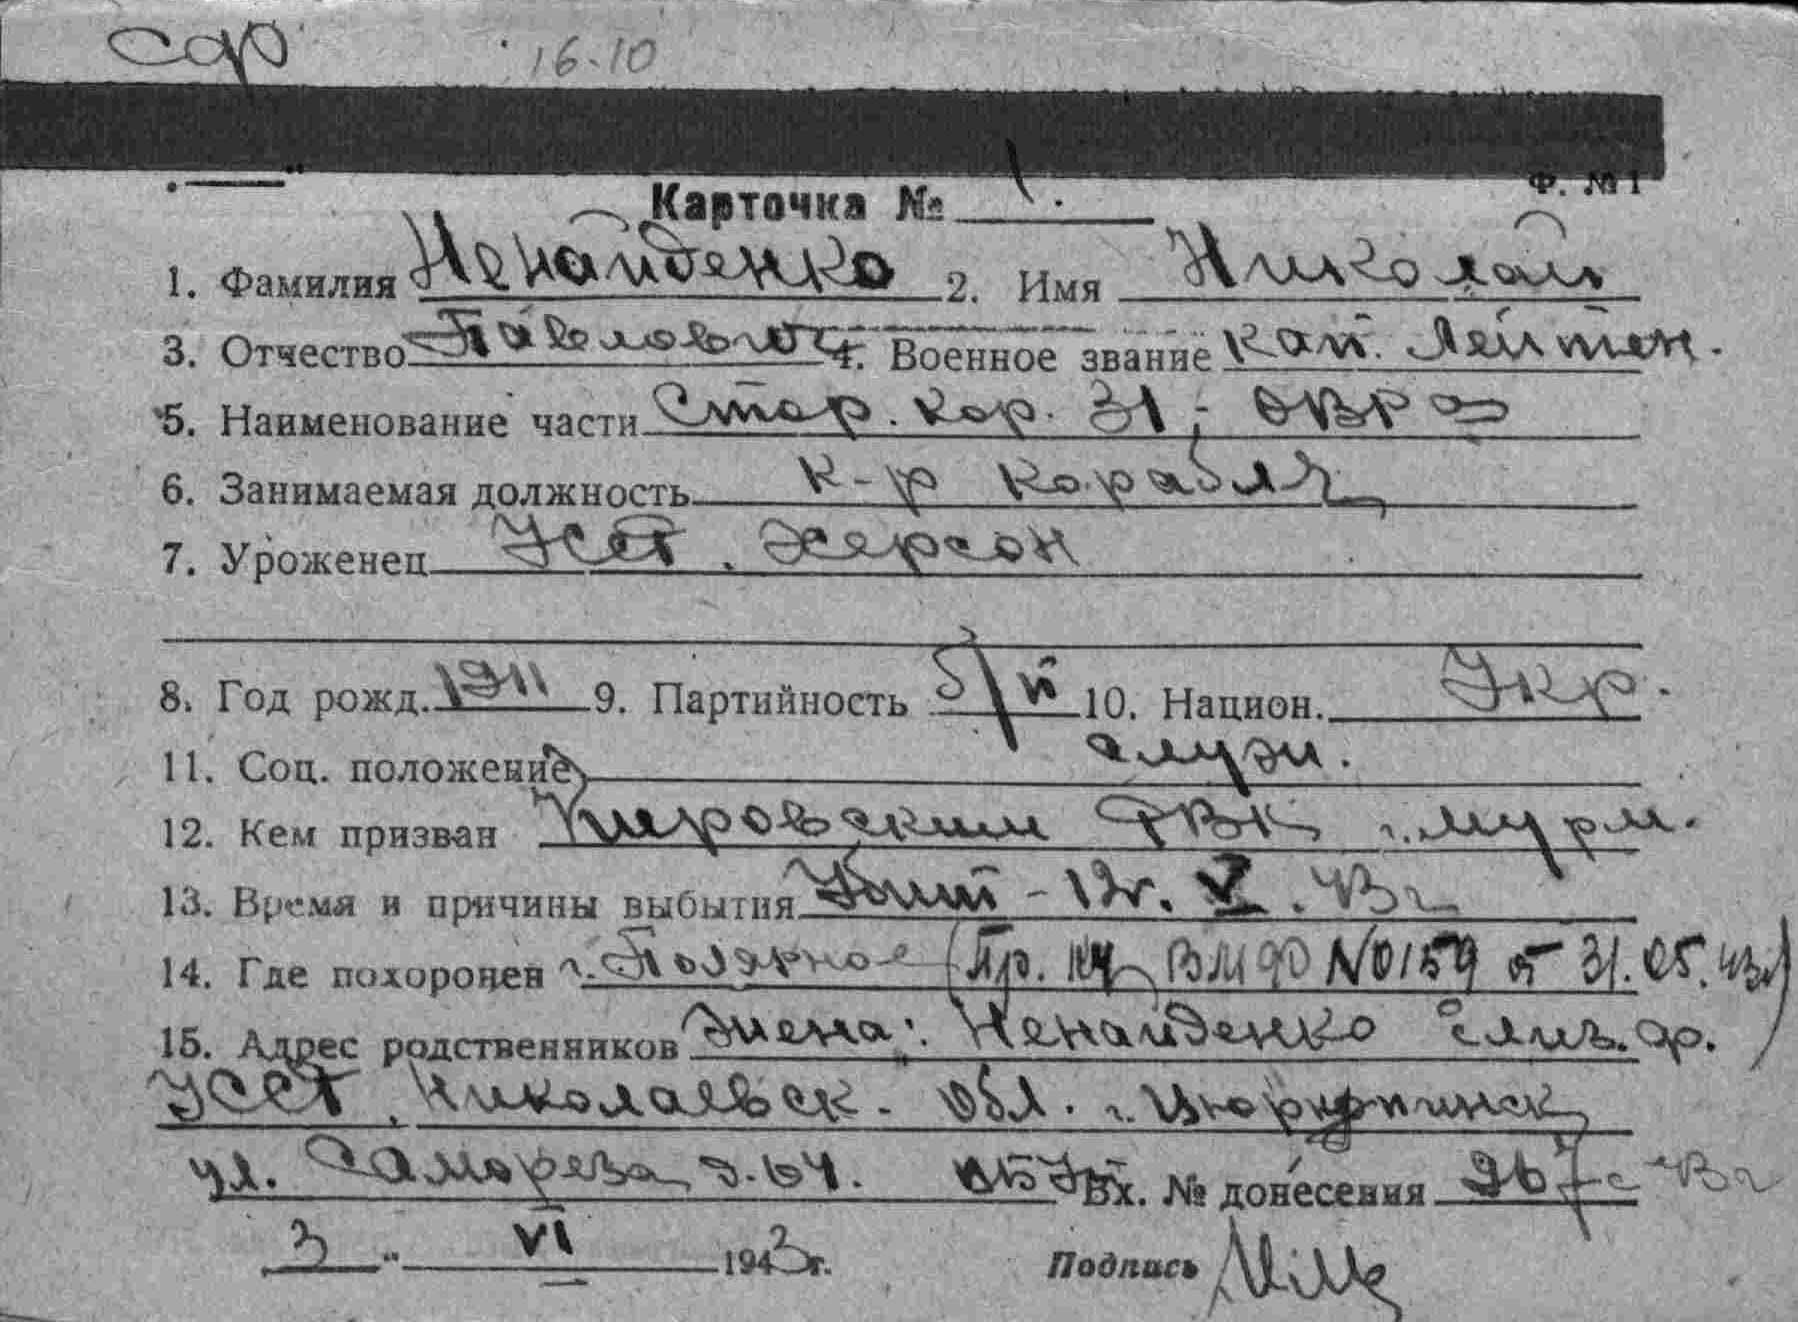 сф 16.10
Ф. № 1
Карточка № 1.
1. Фамилия Ненайденко 2. Имя Николай
3. Отчество Павлович 4. Военное звание кап. Лейтен.
5. Наименование части Стор. кор. 31, ОВР а
6. Занимаемая должность к-р корабля
7. Уроженец УССР. Херсон
8. Год рожд. 1911 9. Партийность б/п 10. Национ. Укр.
11. Соц. положение служ.
12. Кем призван Кировским РВК г. Мурм.
13. Время и причины выбытия Убит - 12г. V. 43 г
14. Где похоронен г. Полярное (Пр. ВМФ № 0159 от 31.05.43г)
15. Адрес родственников Жена: Ненайденко Елиз. Ф.
УССР, Николаевск. обл. г. Цюрупинск
ул. Самореза д. 64. Вх. № донесения 967с 43г
3 " VI 1943 г. Подпись